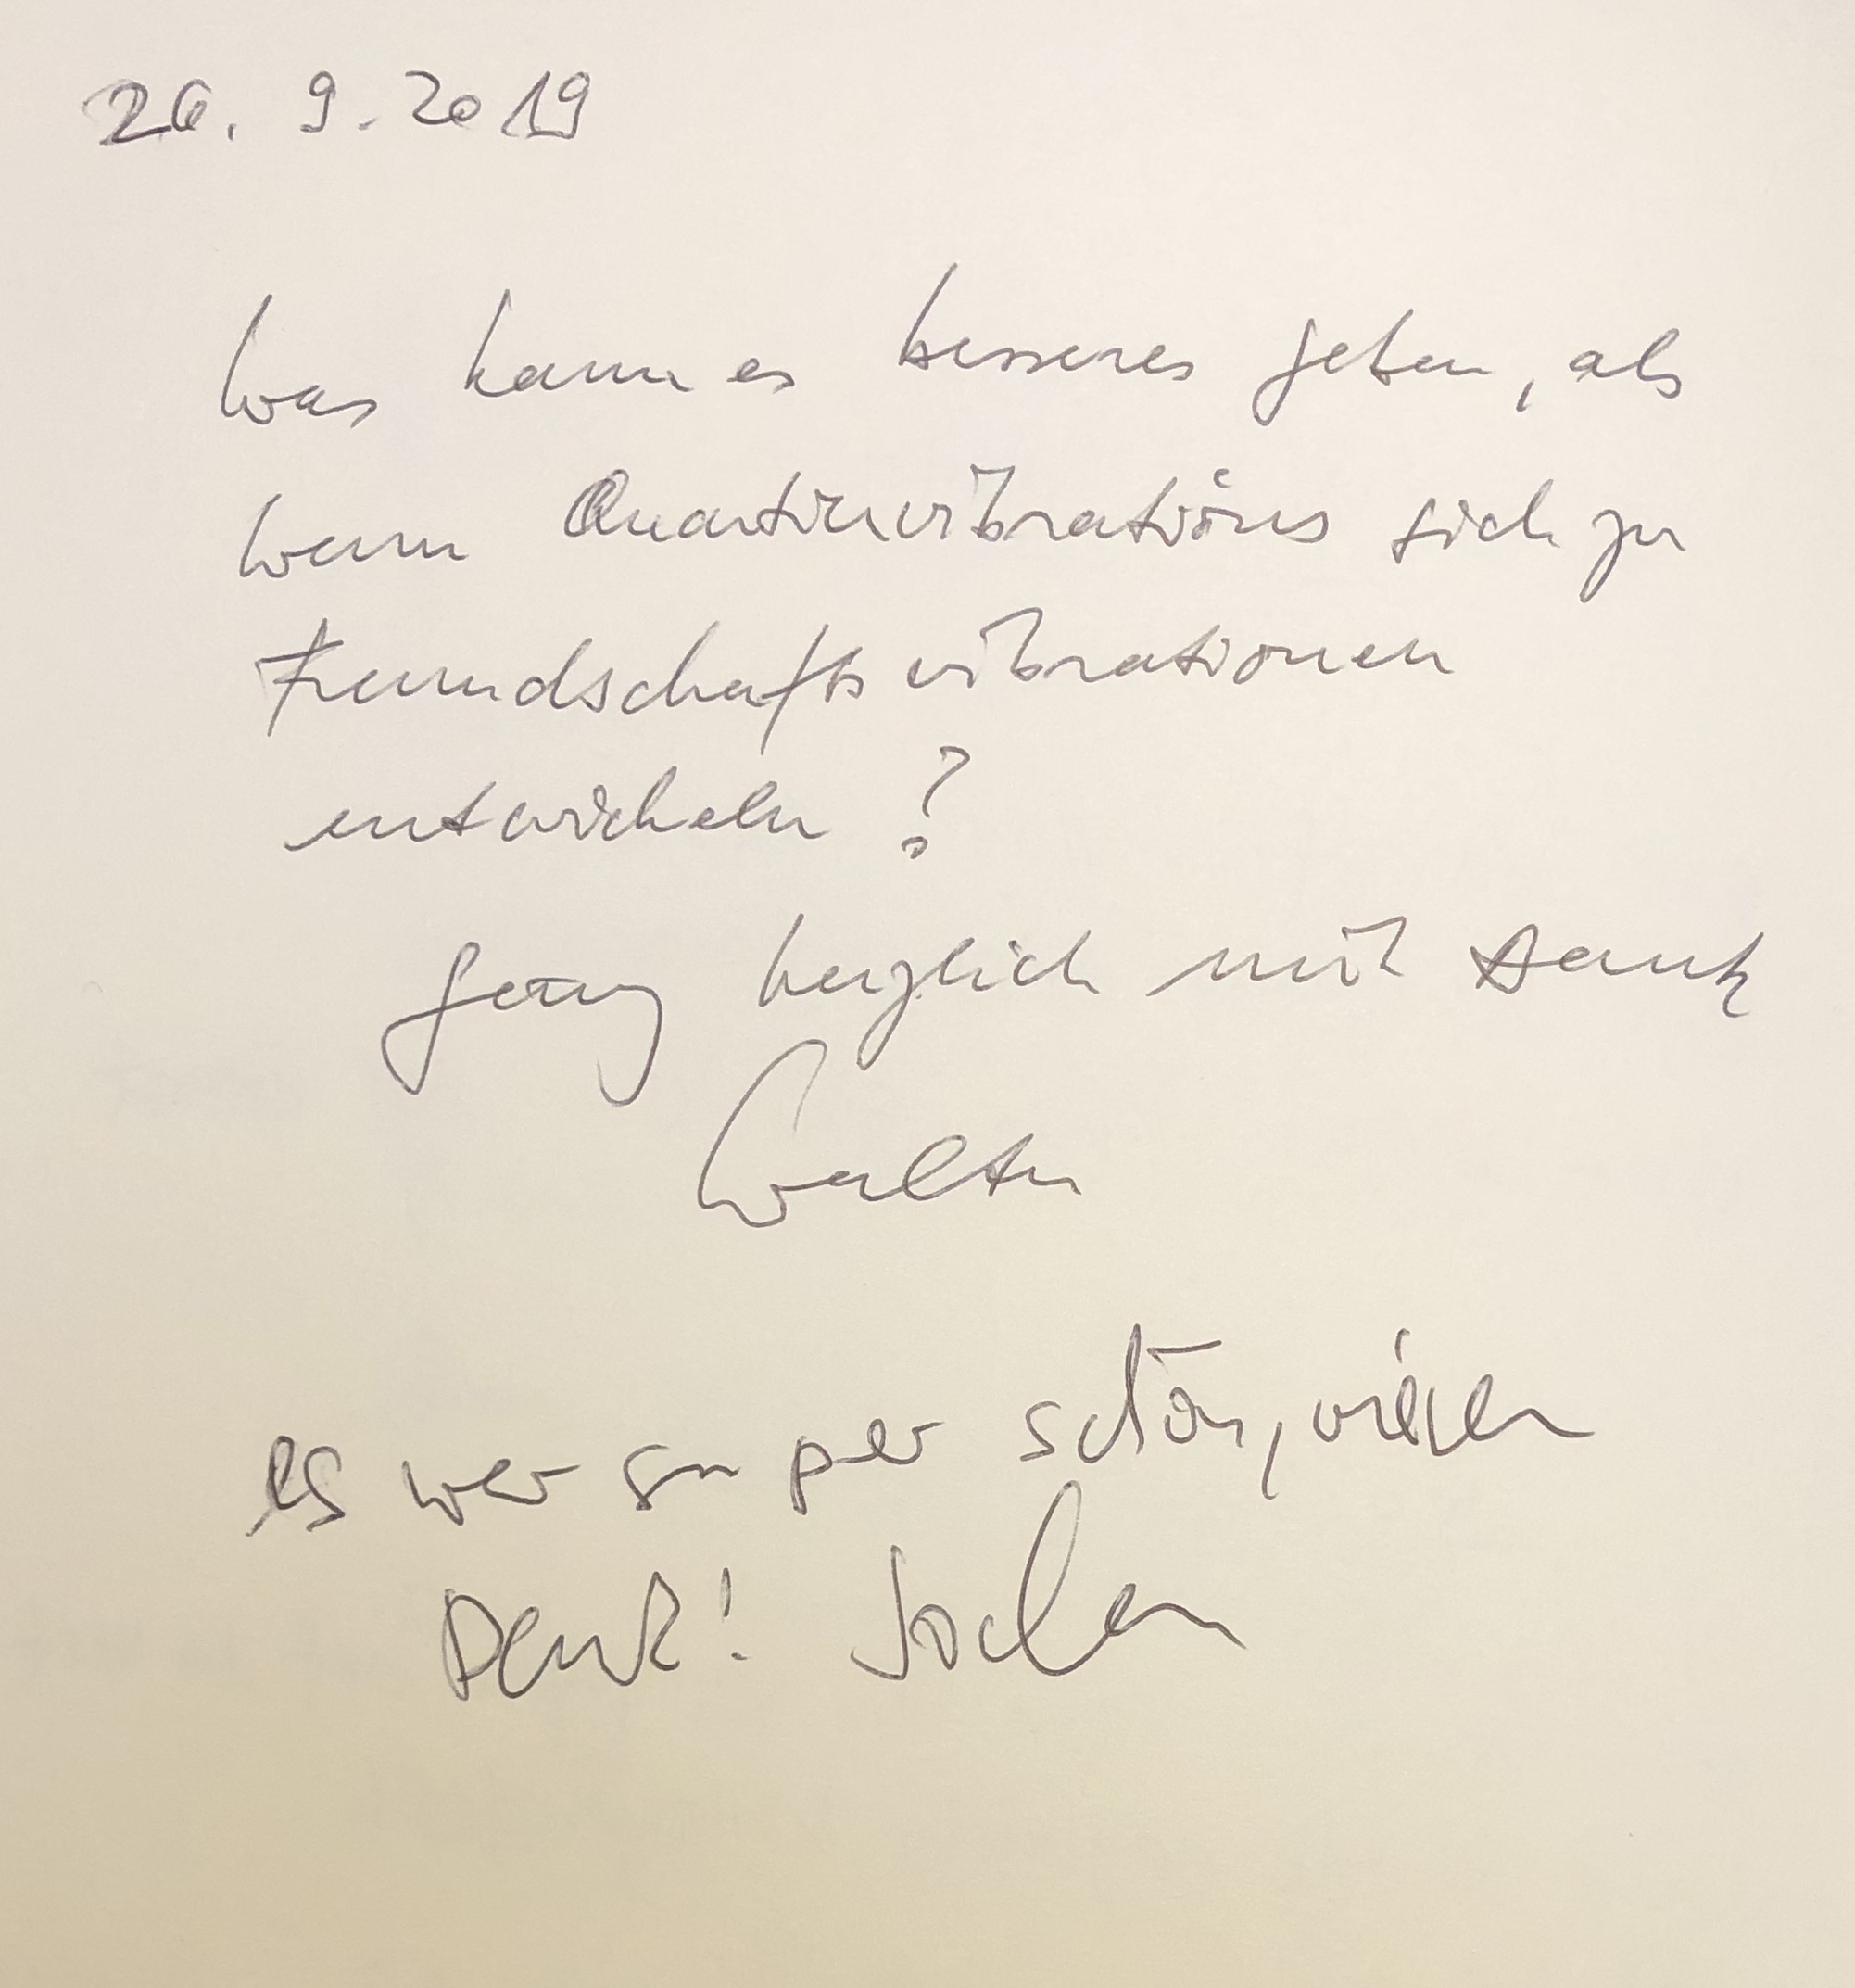 26. 9. 2019
Was kann es besseres geben, als
wenn Quartiervibrations sich zu
Freundschaftsvibrationen
entwickeln?
ganz herzlich mit Dank
Walter
es war super schön, vielen
Dank! Jochen